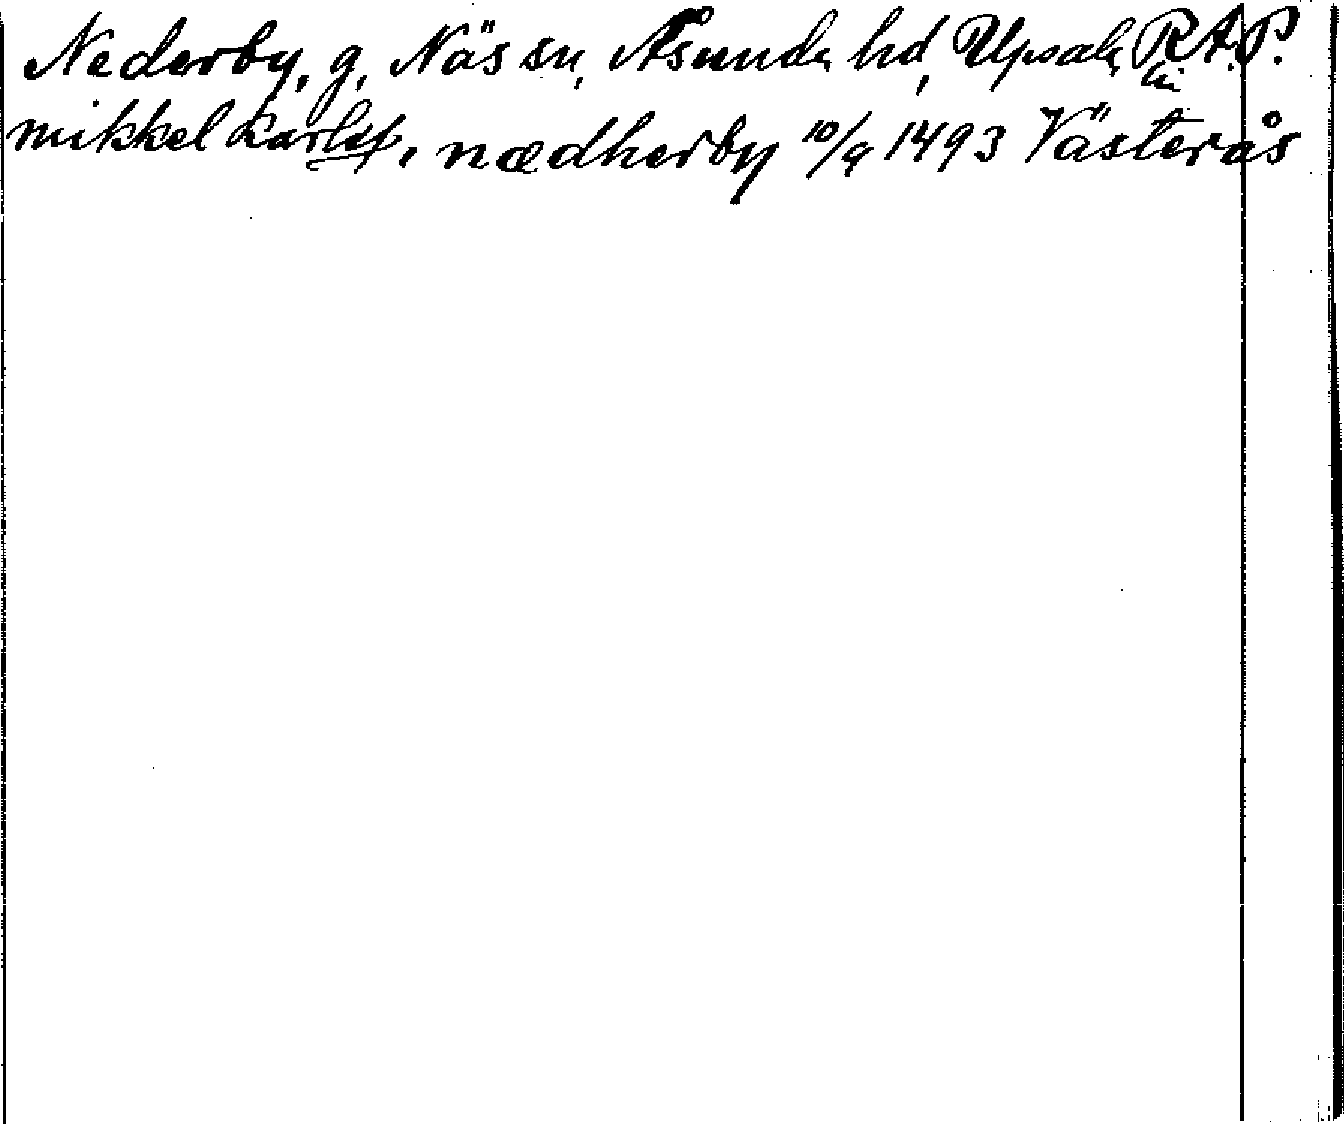 Nederby, g, Näs sn, Åsunda hd, Upsala län R.A.P.
mikkel karlss, nædherby 10/9 1493 Västerås